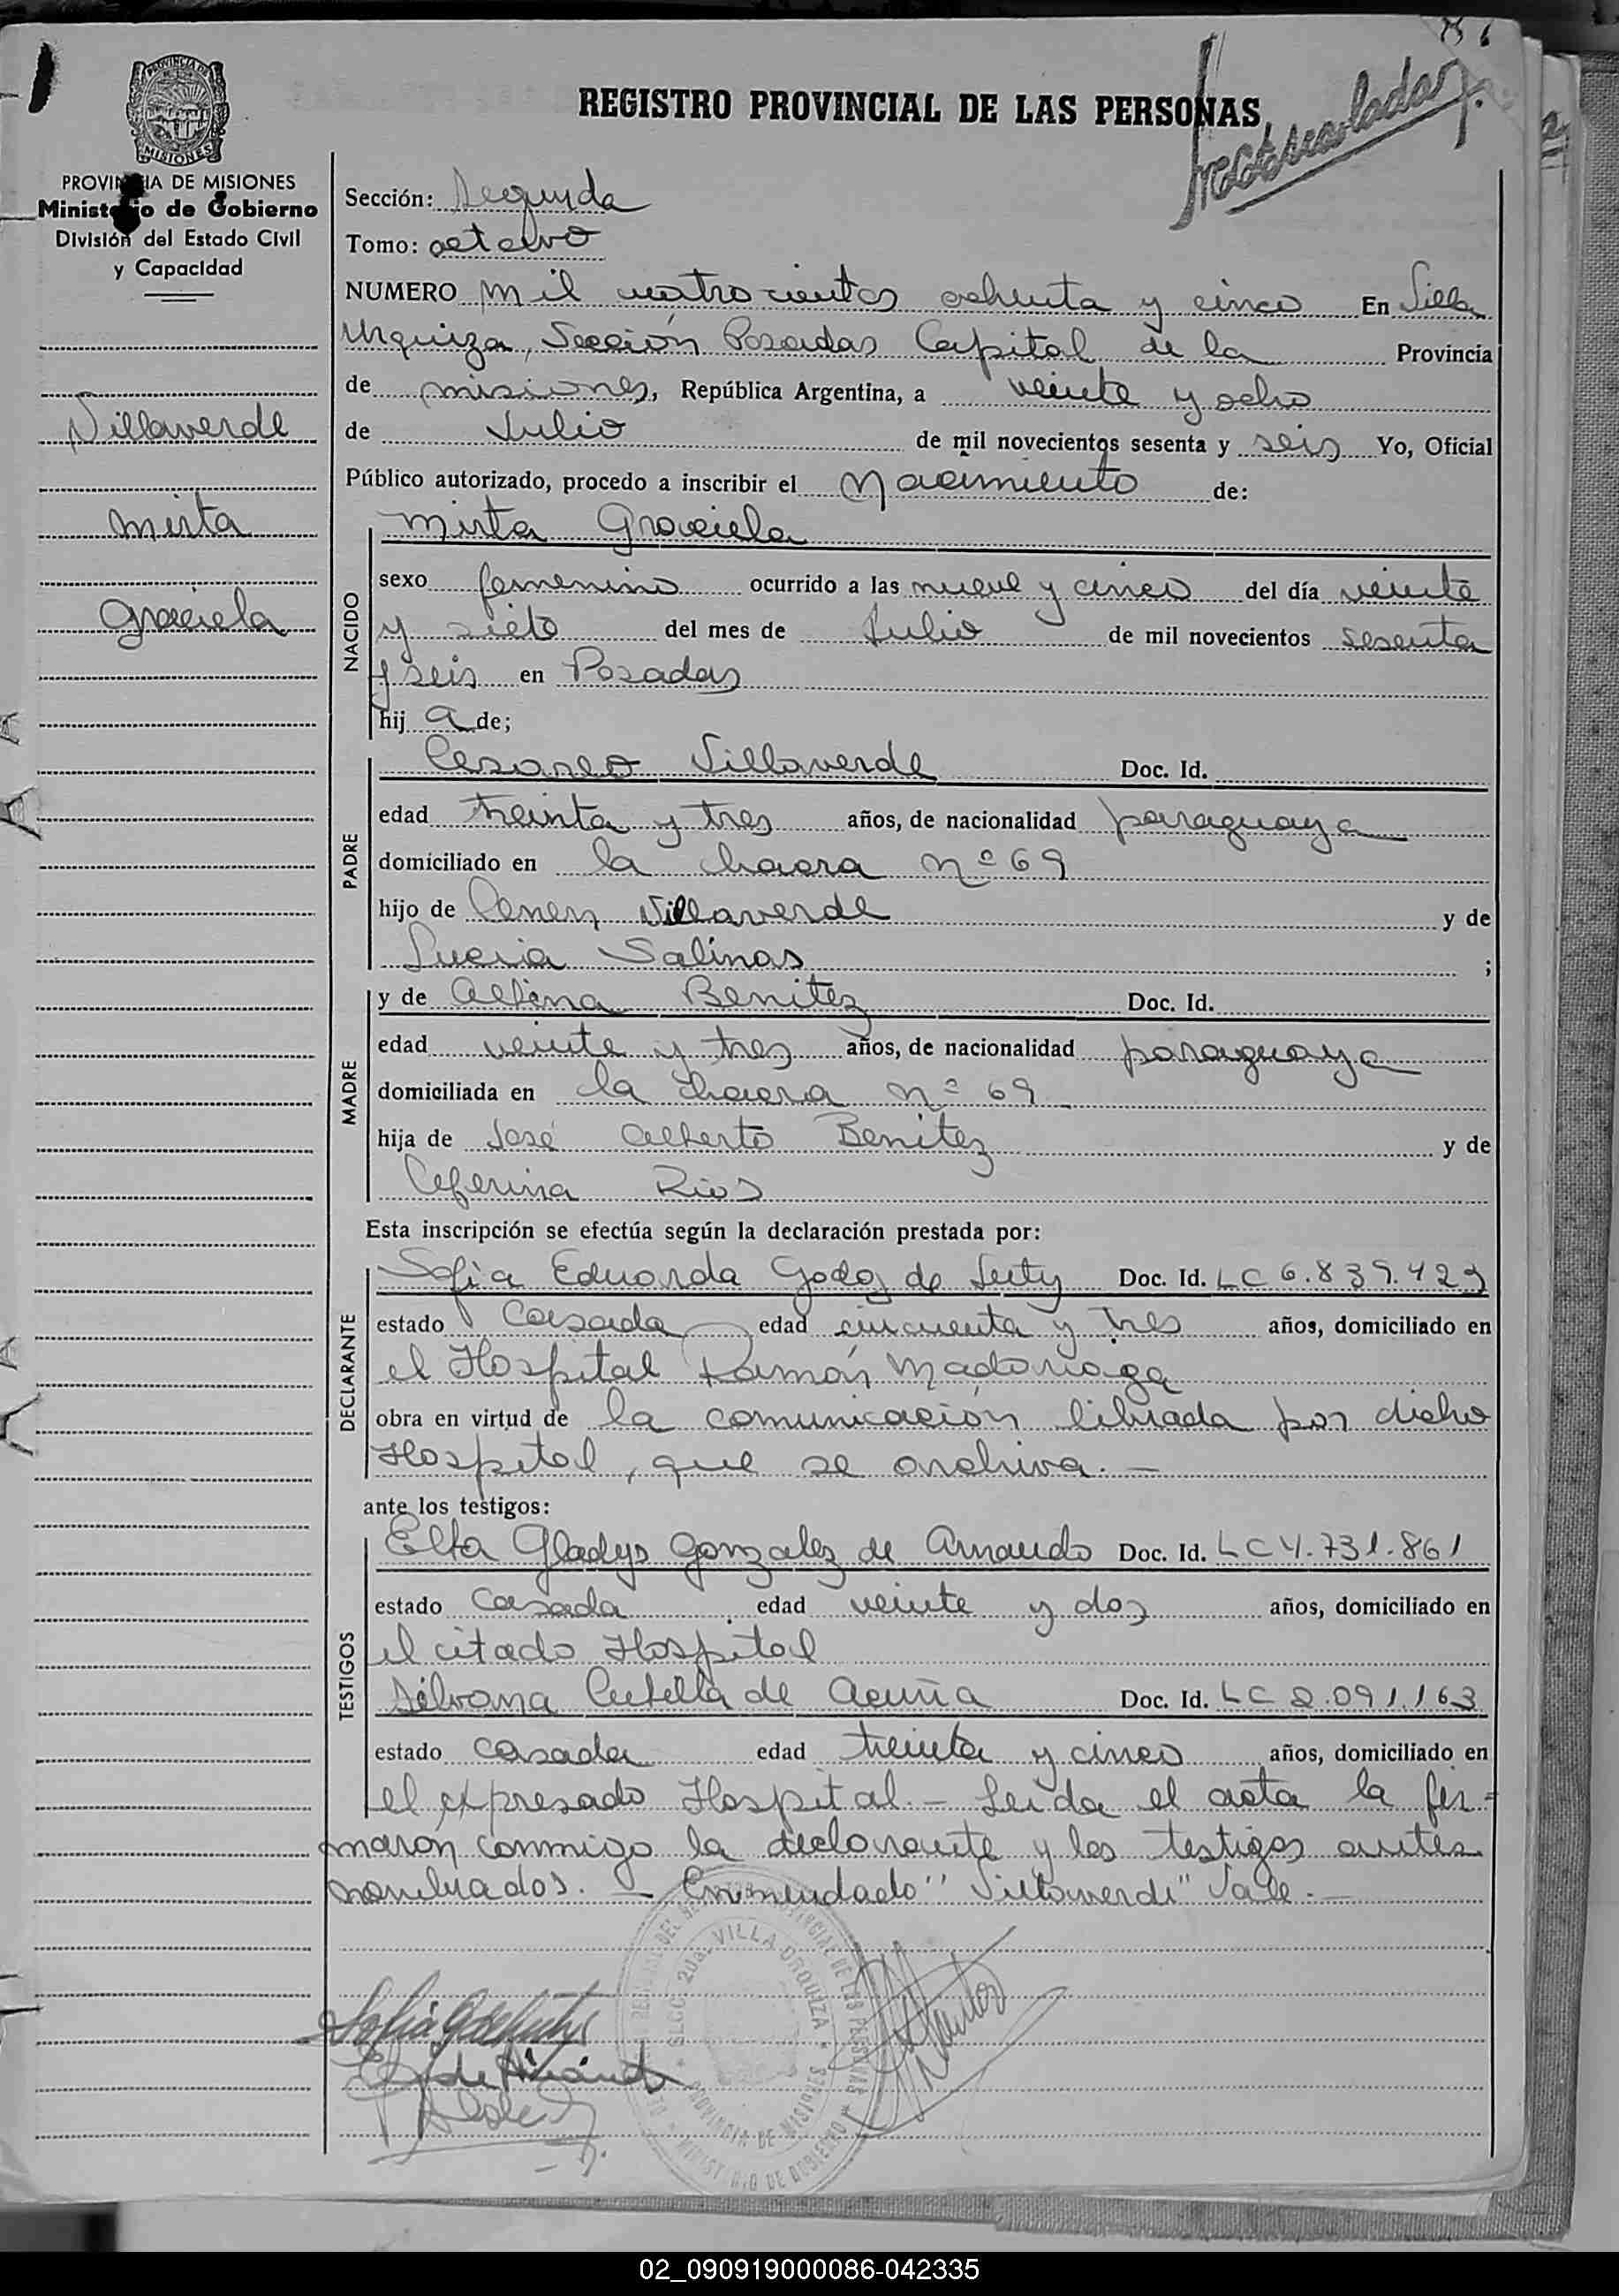 86
REGISTRO PROVINCIAL DE LAS PERSONAS
PROVINCIA DE MISIONES
MISIONES
PROVINCIA DE MISIONES
Ministerio de Gobierno
División del Estado Civil
y Capacidad
Villaverde
Mirta
Graciela
Sección: Segunda
Tomo: octavo
NUMERO mil cuatrocientos ochenta y cinco En Villa
Urquiza, Sección Posadas Capital de la Provincia
de misiones, República Argentina, a veinte y ocho
de Julio de mil novecientos sesenta y seis Yo, Oficial
Público autorizado, procedo a inscribir el Nacimiento de:
NACIDO
Mirta Graciela
sexo femenino ocurrido a las nueve y cinco del día veinte
y siete del mes de Julio de mil novecientos sesenta
y seis en Posadas
hij a de;
PADRE
Cesareo Villaverde Doc. Id.
edad treinta y tres años, de nacionalidad paraguaya
domiciliado en la chacra nº 69
hijo de Villaverde y de
Lucia Salinas ;
MADRE
y de Albina Benitez Doc. Id.
edad veinte y tres años, de nacionalidad paraguaya
domiciliada en la chacra nº 69
hija de José Alberto Benitez y de
Ceferina Rios
Esta inscripción se efectúa según la declaración prestada por:
DECLARANTE
Sofia Eduarda Godoy de Doc. Id. LC 6.839.429
estado Casada edad cincuenta y tres años, domiciliado en
el Hospital Ramón Madariaga
obra en virtud de la comunicación librada por dicho
Hospital, que se archiva. —
ante los testigos:
TESTIGOS
Elba Gladys Gonzalez de Doc. Id. LC 4.731.861
estado Casada edad veinte y dos años, domiciliado en
el citado Hospital
Silvana de Acuña Doc. Id. LC 2.091.163
estado casada edad treinta y cinco años, domiciliado en
el expresado Hospital. — Leida el acta la fir-
maron conmigo la declarante y los testigos antes
nombrados. — Enmendado "Villaverde" Vale. —
SECC. 2da. VILLA URQUIZA
PROVINCIA DE MISIONES
MINISTERIO DE GOBIERNO
02_090919000086-042335